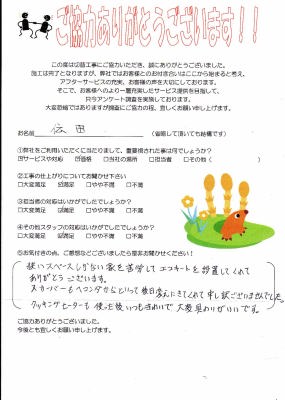 ご協力ありがとうございます!!
この度は切替工事にご協力いただき、誠にありがとうございました。
施工は完了となりますが、弊社ではお客様とのお付き合いはここから始まると考え、
アフターサービスの充実、お客様の声を大切にしております。
そこで、お客様へのより一層充実したサービス提供を目指して、
只今アンケート調査を実施しております。
大変恐縮ではありますが調査にご協力の程、宜しくお願い申し上げます。
お名前
(省略して頂いても結構です)
①弊社をご利用いただくに当たりまして、重要視された事は何でしょうか?
☑サービスや対応 ☑価格 □当社の場所 □担当者 □その他( )
②工事の仕上がりについてお聞かせ下さい
□大変満足 ☑満足 □やや不満 □不満
③担当者の対応はいかがでしたでしょうか?
□大変満足 ☑満足 □やや不満 □不満
④その他スタッフの対応はいかがでしたでしょうか?
□大変満足 ☑満足 □やや不満 □不満
⑤お気付きの点、ご感想などございましたら是非お聞かせください!
狭いスペースしかない家を苦労して エコキュートを設置してくれて
ありがとうございます。
クッキングヒーターも使った後いつもきれいで 大変具合がいいです。
ご協力ありがとうございました。
今後とも宜しくお願い申し上げます。